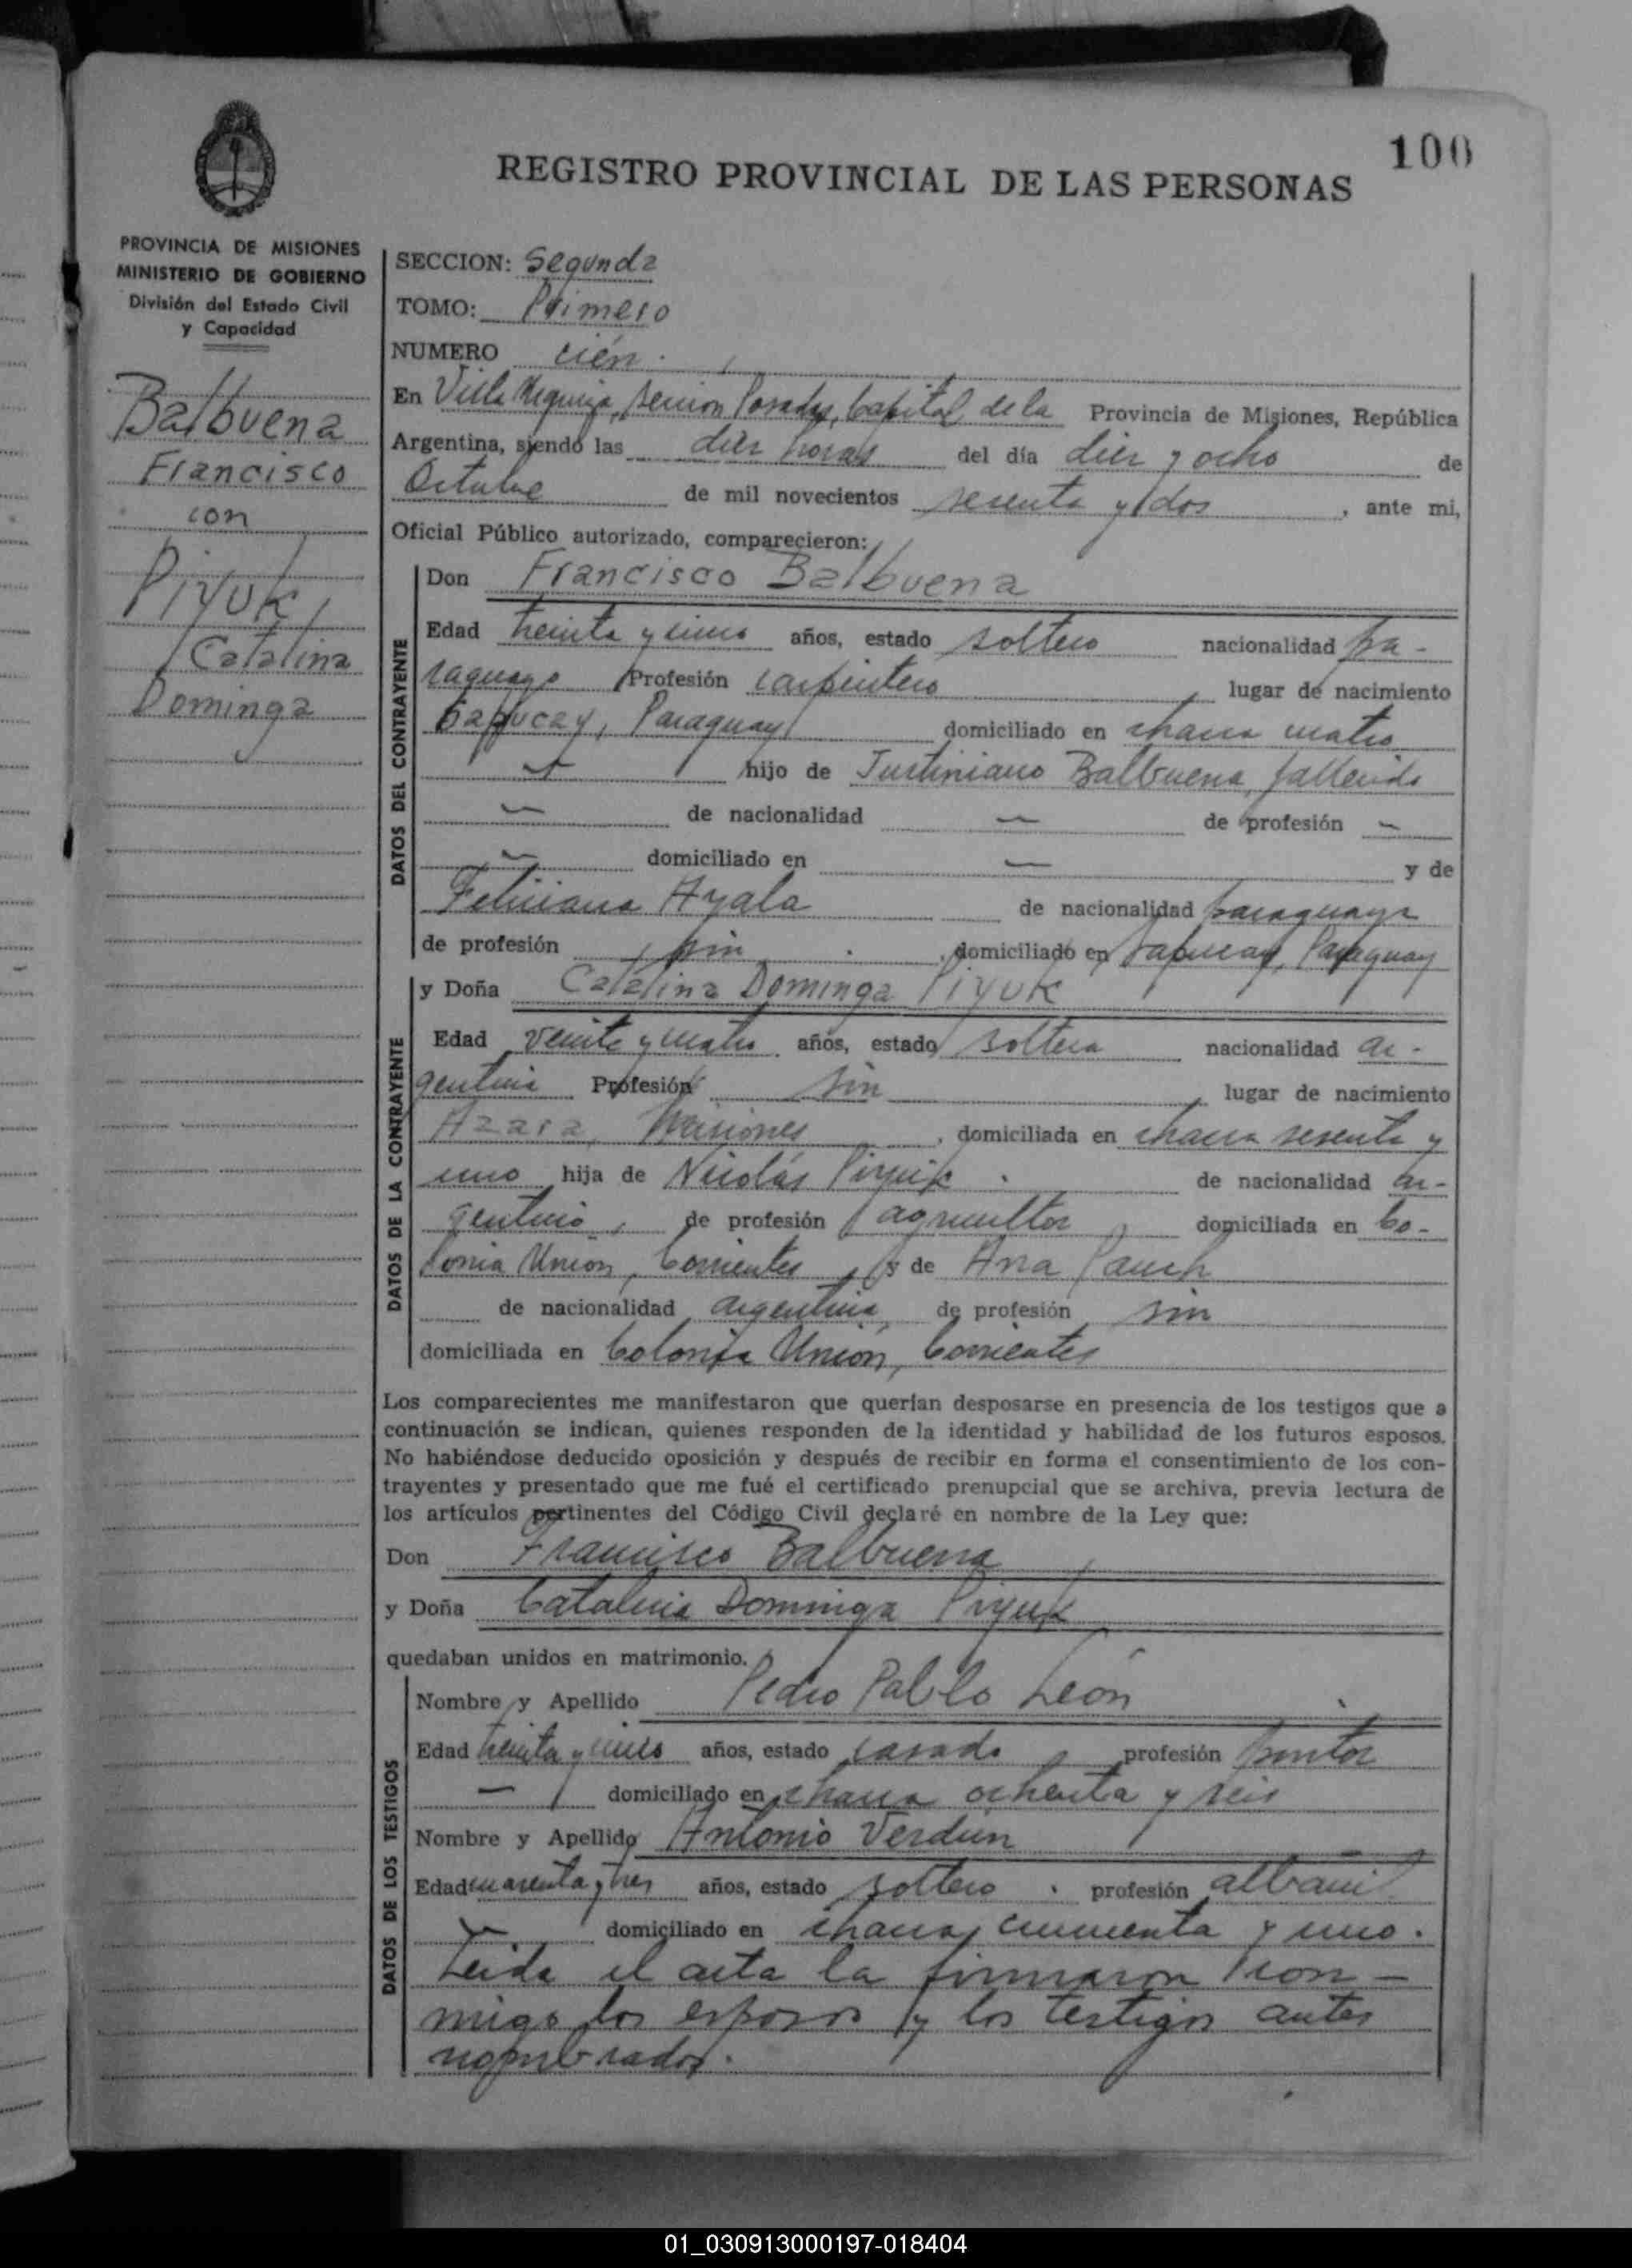 100
REGISTRO PROVINCIAL DE LAS PERSONAS
PROVINCIA DE MISIONES
MINISTERIO DE GOBIERNO
División del Estado Civil
y Capacidad
Balbuena
Francisco
con
Piyuk,
Catalina
Dominga
SECCION: Segunda
TOMO: Primero
NUMERO cién.
En Villa Urquiza, Seccion Posadas, Capital de la Provincia de Misiones, República
Argentina, siendo las diez horas del día diez y ocho de
Octubre de mil novecientos sesenta y dos, ante mi,
Oficial Público autorizado, comparecieron:
DATOS DEL CONTRAYENTE
Don Francisco Balbuena
Edad treinta y cinco años, estado soltero nacionalidad pa-
raguayo Profesión carpintero, lugar de nacimiento
Sapucay, Paraguay domiciliado en chacra cuatro
hijo de Justiniano Balbuena, fallecido
— de nacionalidad — de profesión —
— domiciliado en — y de
Feliciana Ayala de nacionalidad paraguaya
de profesión sin, domiciliado en Sapucay, Paraguay
DATOS DE LA CONTRAYENTE
y Doña Catalina Dominga Piyuk
Edad veinte y cuatro años, estado soltera nacionalidad ar-
gentina Profesión sin, lugar de nacimiento
Azara, Misiones, domiciliada en chacra sesenta y
uno hija de Nicolás Piyuk. de nacionalidad ar-
gentino, de profesión agricultor, domiciliada en Co-
lonia Unión, Corrientes, y de Ana Pauch
de nacionalidad argentina, de profesión sin
domiciliada en Colonia Unión, Corrientes
Los comparecientes me manifestaron que querían desposarse en presencia de los testigos que a
continuación se indican, quienes responden de la identidad y habilidad de los futuros esposos.
No habiéndose deducido oposición y después de recibir en forma el consentimiento de los con-
trayentes y presentado que me fué el certificado prenupcial que se archiva, previa lectura de
los artículos pertinentes del Código Civil declaré en nombre de la Ley que:
Don Francisco Balbuena
y Doña Catalina Dominga Piyuk
quedaban unidos en matrimonio.
DATOS DE LOS TESTIGOS
Nombre y Apellido Pedro Pablo León
Edad treinta y cinco años, estado casado, profesión pintor
— domiciliado en chacra ochenta y seis
Nombre y Apellido Antonio Verdún
Edad cuarenta y tres años, estado soltero. profesión albañil
domiciliado en chacra cincuenta y uno.
Leida el acta la firmaron con-
migo los esposos y los testigos antes
nombrados.
01_030913000197-018404